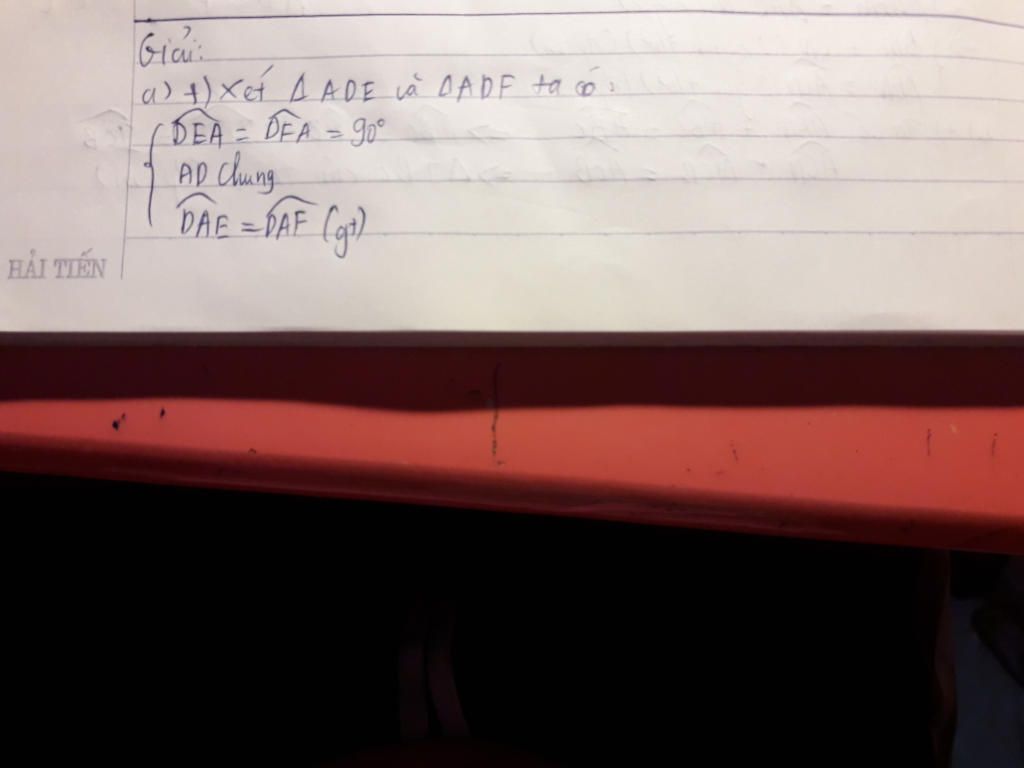 Giải:
a) +) Xét Δ ADE và ΔADF ta có:
DEA = DFA = 90°
AD chung
DAE = DAF (gt)
HẢI TIẾN